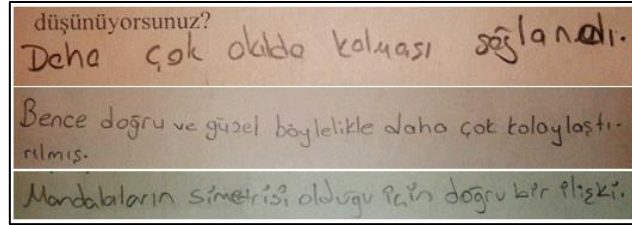 düşünüyorsunuz?
Daha çok akılda kalması sağlandı.
Bence doğru ve güzel böylelikle daha çok kolaylaştı-
rılmış.
Mandalaların simetrisi olduğu için doğru bir ilişki.